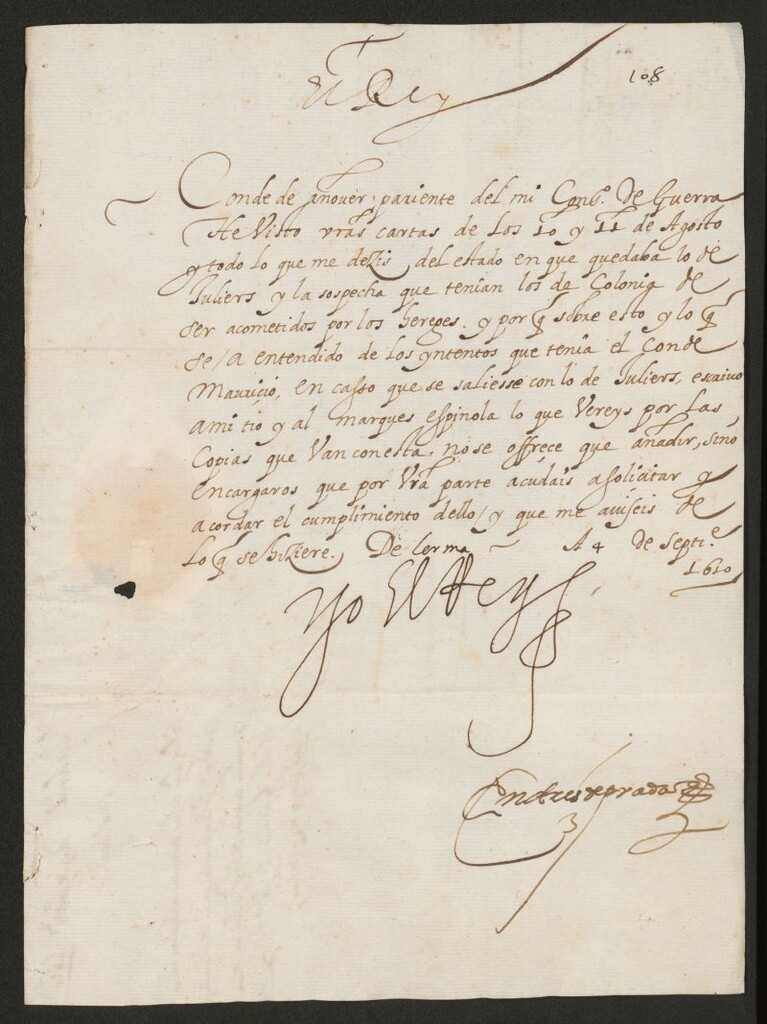 El Rey
108
Conde de añover, pariente del mi Consº. De Guerra
He Visto vrãs cartas de los 10 y 11 de Agosto
y todo lo que me dezis, del estado en que quedaba lo de
Juliers y la sospecha que tenian los de Colonia de
ser acometidos por los hereges. y por q̃ sobre esto y lo q̃
se /a entendido de los yntentos que tenia el Conde
Mauricio, en casso que se saliesse con lo de Juliers, escrivo
ami tio y al marques espinola lo que Vereys por las
Copias que Van conesta. nose offrece que añadir, sino
encargaros que por Vrã parte acudais asoliçitar y
acordar el cumplimiento dello / y que me aviseis de
lo q̃ sehiziere. De lerma A 4 de Septiẽ.
1610
Yo El Rey
Andres de prada